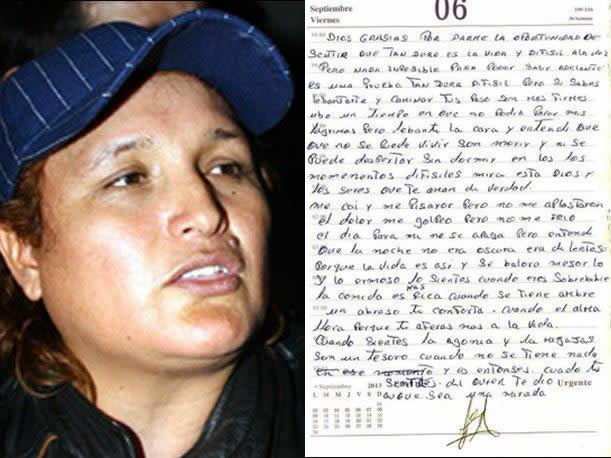 Septiembre
Viernes
06
249-116
36 Semana
DIOS GRASIAS POR DARME LA OPORTUNIDAD DE
SENTIR QUE TAN DURO ES LA VIDA Y DIFISIL A LA VEZ
PERO NADA IMPOSIBLE PARA PODER SALIR ADELANTE
ES UNA PRUEBA TAN DURA DIFISIL PERO SI SABES
LEBANTARTE Y CAMINAR TUS PASO SON MAS FIRMES
UBO UN TIEMPO EN QUE NO PODIA PARAR MIS
LAGRIMAS PERO LEBANTE LA CARA Y ENTENDI QUE
QUE NO SE PUEDE VIVIR SON MORIR Y NI SE
PUEDE DESPERTAR SIN DORMIR EN LOS LOS
MOMENENTOS DIFISILES MIRA ESTA DIOS Y
LOS SERES QUE TE AMAN DE VERDAD.
ME CAI Y ME PISARON PERO NO ME APLASTARON,
EL DOLOR ME GOLPEO PERO NO ME
EL DIA PARA MI NO SE APAGA PERO ENTENDI
QUE LA NOCHE NO ERA OSCURA ERA DI LENTES.
PORQUE LA VIDA ES ASI Y SE BALORA MEJOR LO
Y LO ERMOSO LO SIENTES CUANDO ERES SOBREBIBIR
LA COMIDA ES MAS RICA CUANDO SE TIENE AMBRE
UN ABRASO TE CONFORTA CUANDO EL ALMA
LLORA PORQUE TE AFERAS MAS A LA VIDA.
CUANDO SIENTES LA AGONIA Y LA MIGAJAS
SON UN TESORO CUANDO NO SE TIENE NADA
EN ESE MOMENTO Y ES ENTONSES. CUADO TU
SENTIDES DEL QUIEN TE DIO
AUQUE SEA UNA MIRADA
Septiembre 2013
Urgente
L M M J V S D